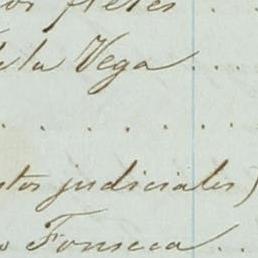 fletes .
de la Vega . . .
. . . . .
judiciales)
Fonseca . .